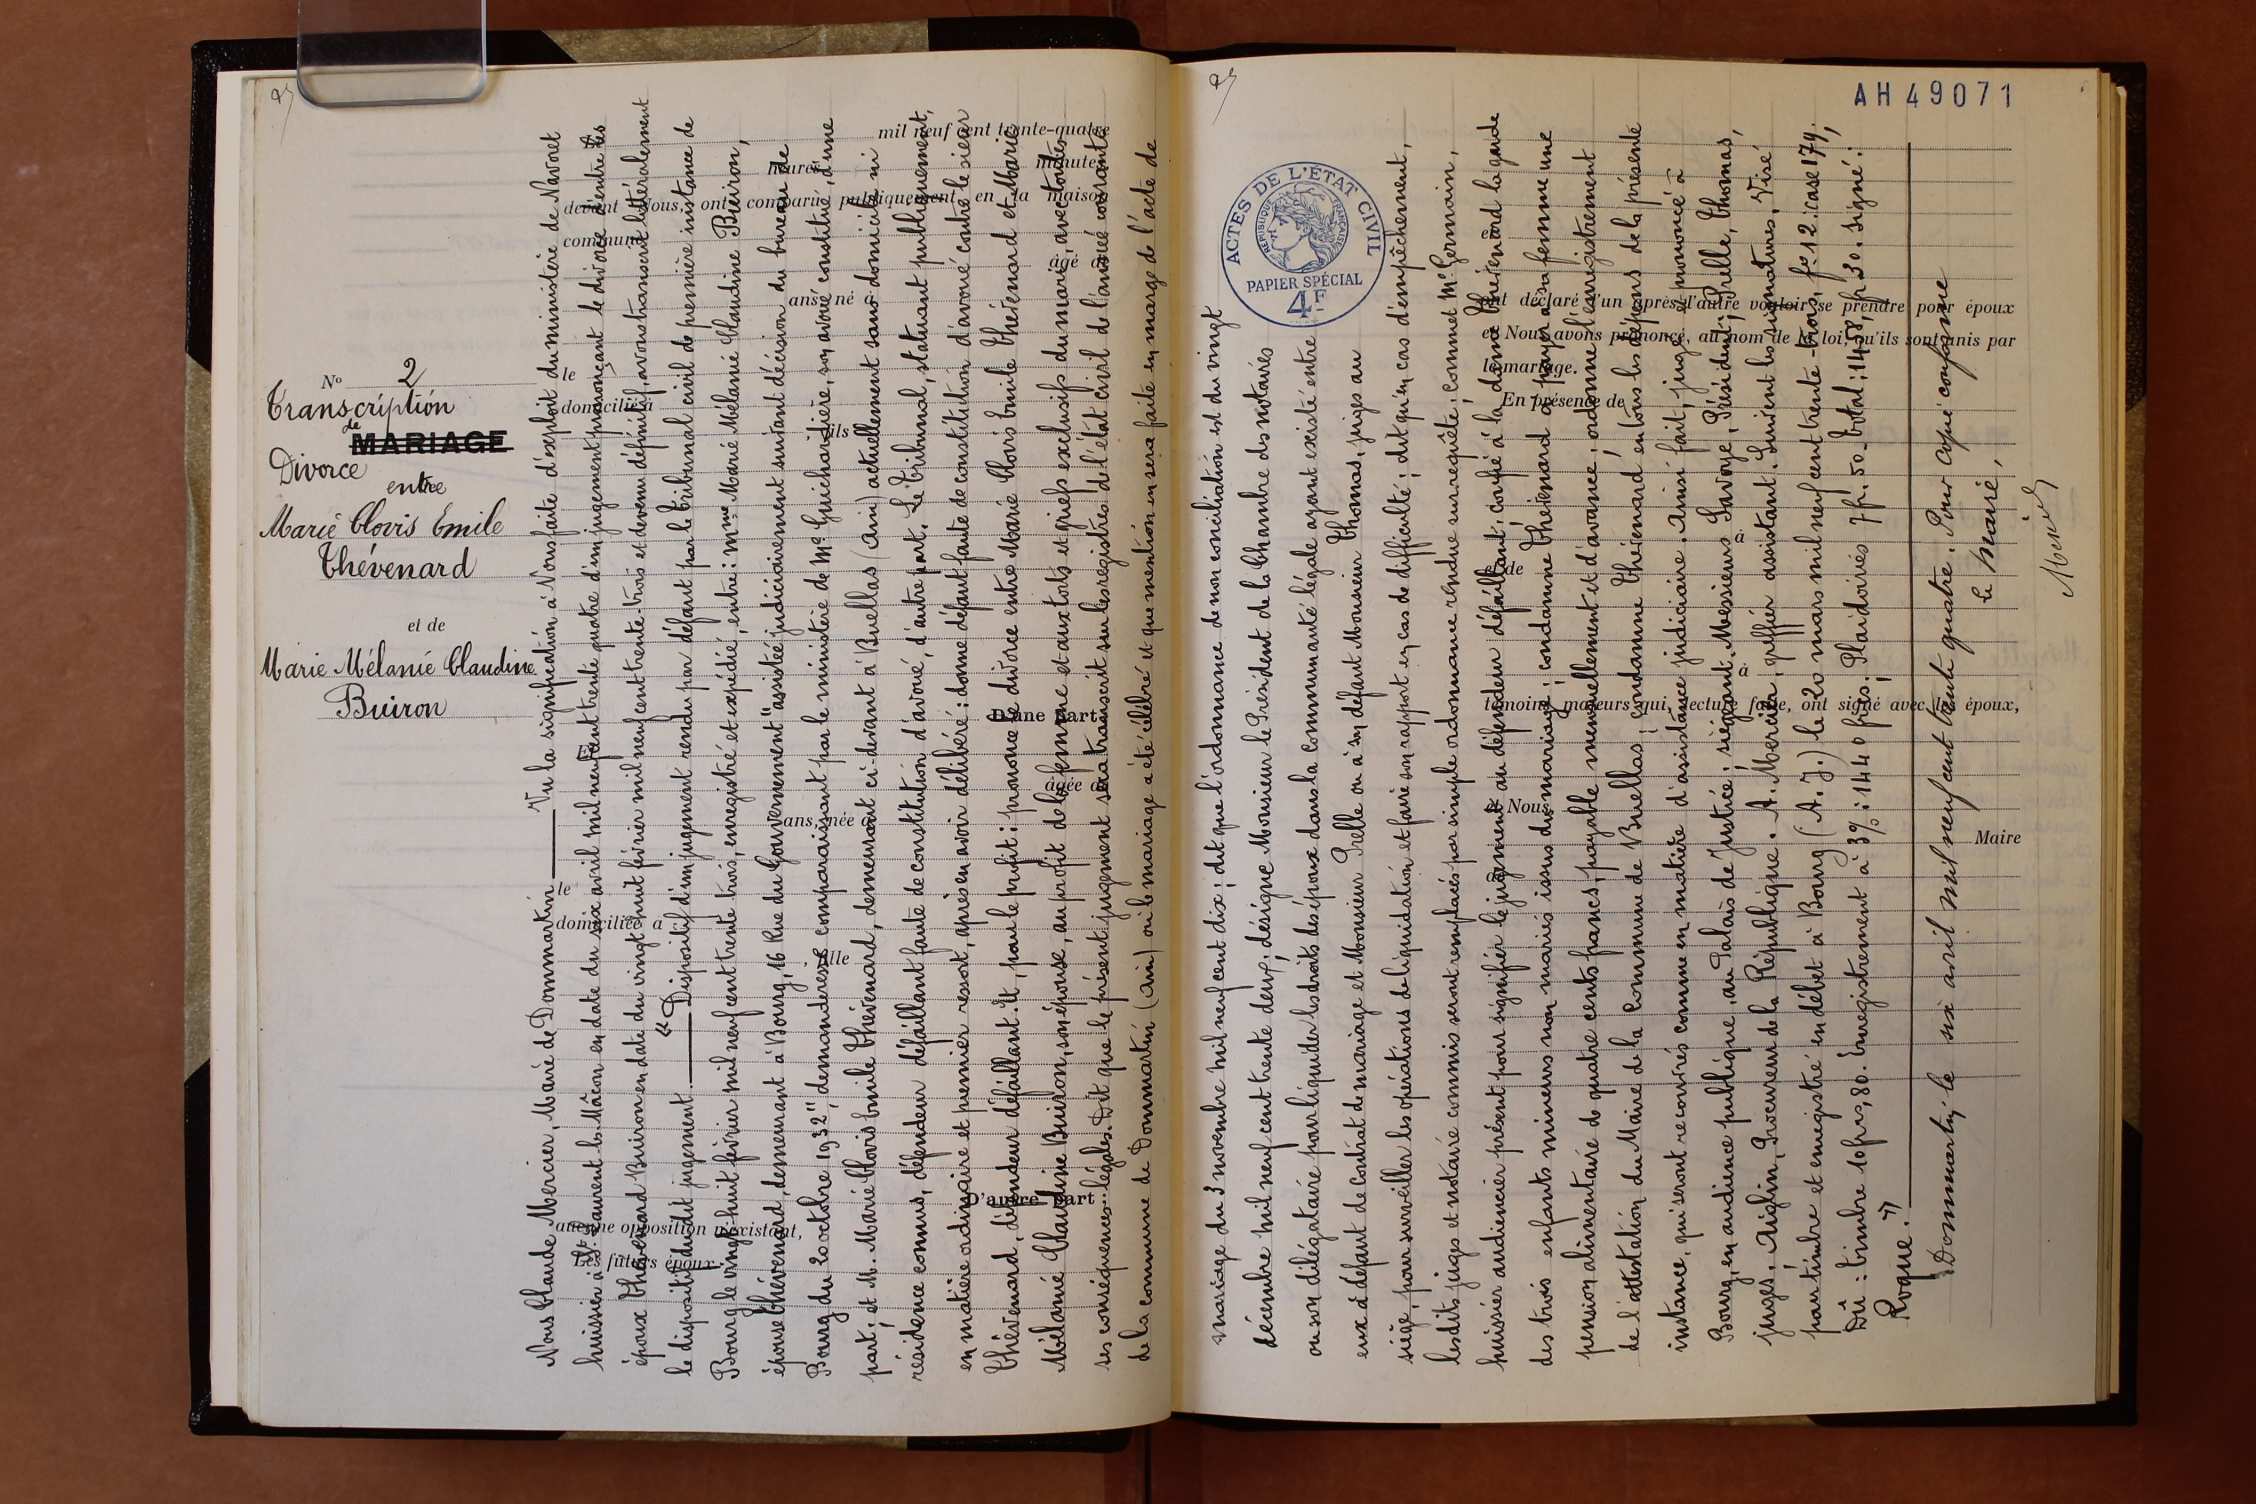 N° 2
Transcription
de
MARIAGE
Divorce
entre
Marie Clovis Emile
Thévenard
et de
Marie Mélanie Claudine
Buiron
Nous Claude Mercier, Maire de Dommartin Vu la signification à Nous faite d'exploit du ministère de Navoret
huissier à St Laurent les Mâcon en date du six avril mil neuf cent trente quatre d'un jugement prononçant le divorce d'entre les
époux Thévenard Buiron en date du vingt huit février mil neuf cent trente-trois et devenu définitif, avons transcrit littéralement
le dispositif dudit jugement. "Dispositif d'un jugement rendu par défaut par le tribunal civil de première instance de
Bourg le vingt-huit février mil neuf cent trente trois, enregistré et expédié, entre: Mme Marie Mélanie Claudine Buiron,
épouse Thévenard, demeurant à Bourg, 16 Rue du Gouvernement "assistée judiciairement suivant décision du bureau de
Bourg du 20 octobre 1932", demanderesse comparaissant par le ministère de Me Guichardière, son avoué constitué, d'une
part; et M. Marie Clovis Emile Thévenard, demeurant ci-devant à Buellas (Ain) actuellement sans domicile ni
résidence connus, défendeur défaillant faute de constitution d'avoué, d'autre part. Le Tribunal, statuant publiquement,
en matière ordinaire et premier ressort, après en avoir délibéré: donne défaut faute de constitution d'avoué contre le sieur
Thévenard, défendeur défaillant. Et, pour le profit: prononce le divorce entre Marie Clovis Emile Thévenard et Marie
Mélanie Claudine Buiron, son épouse, au profit de la femme et aux torts et griefs exclusifs du mari, avec toutes
ses conséquences légales. Dit que le présent jugement sera transcrit sur les registres de l'état civil de l'année courante
de la commune de Dommartin (Ain) où le mariage a été célébré et que mention en sera faite en marge de l'acte de
mil neuf cent trente-quatre
heures minutes
devant Nous, ont comparu publiquement en la maison
commune
âgé de
ans, né à
le
domicilié à
fils
D'une part
âgée de
ans, née à
le
domiciliée à
fille
D'autre part
aucune opposition n'existant,
Les futurs époux
AH 49071
ACTES DE L'ETAT CIVIL
REPUBLIQUE FRANÇAISE
PAPIER SPÉCIAL
4F
mariage du 3 novembre mil neuf cent dix; dit que l'ordonnance de non conciliation est du vingt
décembre mil neuf cent trente deux; désigne Monsieur le Président de la Chambre des notaires
ou son délégataire pour liquider les droits des époux dans la communauté légale ayant existé entre
eux à défaut de contrat de mariage et Monsieur Prelle ou à son défaut Monsieur Thomas, juges au
siège, pour surveiller les opérations de liquidation et faire son rapport en cas de difficulté; dit qu'en cas d'empêchement,
lesdits juges et notaire commis seront remplacés par simple ordonnance rendue sur requête; commet Me Germain,
huissier audiencier présent pour signifier le jugement au défendeur défaillant; confie à la dame Thévenard la garde
des trois enfants mineurs non mariés issus du mariage; condamne Thévenard à payer à sa femme une
pension alimentaire de quatre cents francs, payable mensuellement et d'avance; ordonne l'enregistrement
de l'attestation du Maire de la Commune de Buellas; condamne Thévenard en tous les dépens de la présente
instance, qui seront recouvrés comme en matière d'assistance judiciaire. Ainsi fait, jugé et prononcé à
Bourg, en audience publique, au Palais de Justice; siégeant Messieurs Savoye, Président; Prelle, Thomas,
juges, Aiglin, Procureur de la République. A. Mercier, greffier assistant. Suivent les signatures. Visé
pour timbre et enregistré en débet à Bourg (A.J.) le 20 mars mil neuf cent trente-trois, f° 12, case 179.
Dû: timbre 10 frs, 80. Enregistrement à 3%: 1440 frs. Plaidoiries 7 fr. 50. Total: 1458, fr 30. Signé:
Roque."
Dommartin le six avril mil neuf cent trente quatre. Pour copie conforme
Le Maire,
Mercier
ont déclaré l'un après l'autre vouloir se prendre pour époux
et Nous avons prononcé, au nom de la loi, qu'ils sont unis par
le mariage.
En présence de
à
et de
à
témoins majeurs qui, lecture faite, ont signé avec les époux,
et Nous
Maire